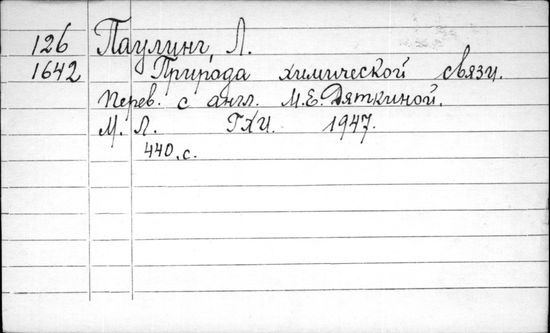 126 Паулинг Л.
1642 Природа химической связи.
Перев. с англ. М.Е. Дяткиной.
М. Л. ГХИ. 1947.
440.с.